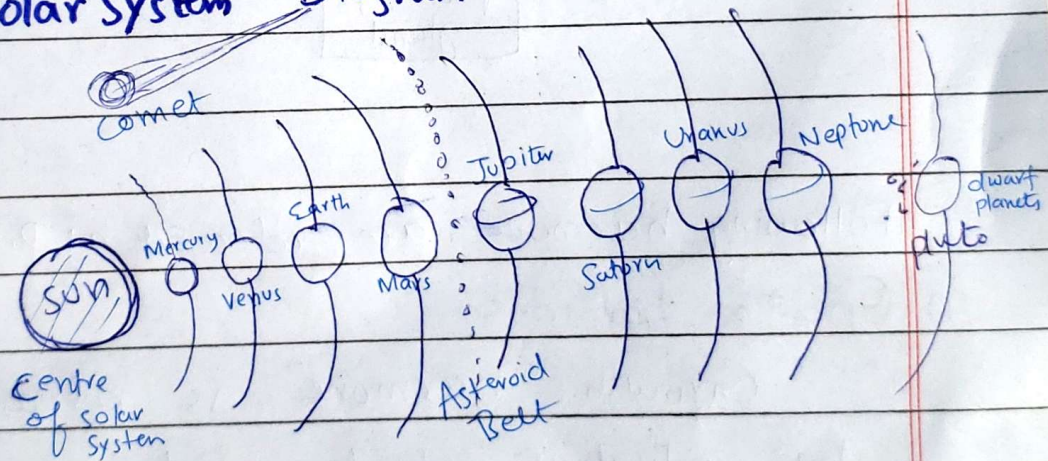 olar system
Comet
Sun
Centre
of solar
system
Mercury
Venus
Earth
Mars
Asteroid
Belt
Jupiter
Saturn
Uranus
Neptune
dwarf
planets
pluto